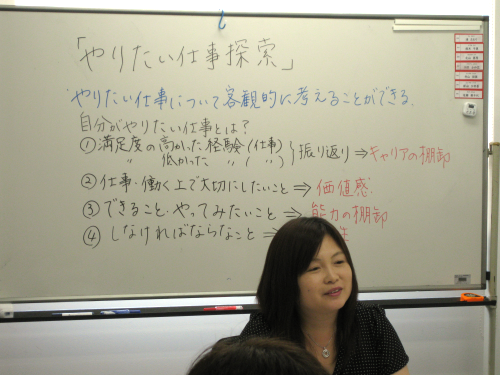 「やりたい仕事探索」
やりたい仕事について客観的に考えることができる.
自分がやりたい仕事とは?
①満足度の高かった経験(仕事)}振り返り⇒キャリアの棚卸
〃 低かった 〃 (〃)
②仕事・働く上で大切にしたいこと⇒価値感.
③できること・やってみたいこと⇒能力の棚卸
④しなければならなこと⇒